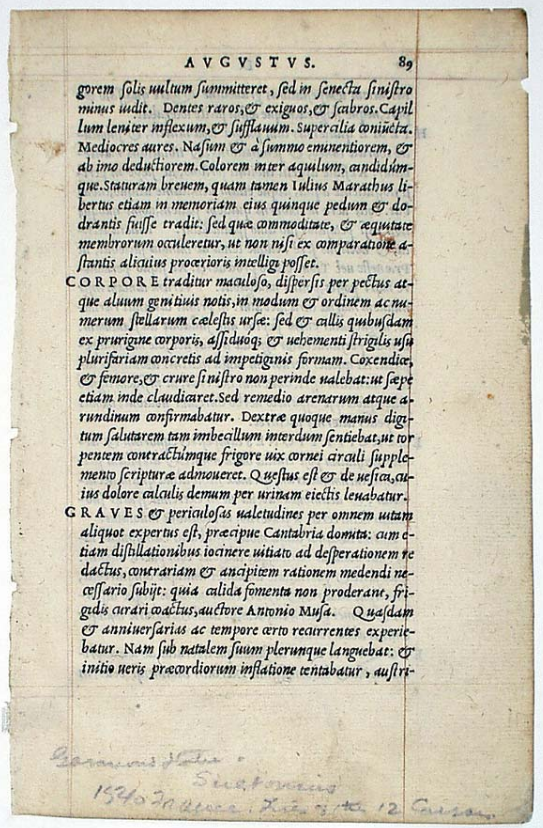 AVGVSTVS. 89
gorem solis uultum summitteret, sed in senecta sinistro
minus uidit. Dentes raros, & exiguos, & scabros. Capil
lum leniter inflexum, & sufflauum. Supercilia coniūcta.
Mediocres aures. Nasum & à summo emunentiorem, &
ab imo deductiorem. Colorem inter aquilum, candidúm-
que. Staturam breuem, quam tamen Iulius Marathus li-
bertus etiam in memoriam eius quinque pedum & do-
drantis fuisse tradit: sed quæ commoditate, & æquitate
membrorum occuleretur, ut non nisi ex comparatione a-
stantis alicuius procerioris intelligi posset.
CORPORE traditur maculoso, dispersis per pectus at-
que aluum genitiuis notis, in modum & ordinem ac nu-
merum stellarum cælestis ursæ: sed & callis quibusdam
ex prurigine corporis, assiduoq; & uehementi strigilis usu
plurifariam concretis ad impetiginis formam. Coxendice,
& femore, & crure sinistro non perinde ualebat: ut sæpe
etiam inde claudicaret. Sed remedio arenarum atque a-
rundinum confirmabatur. Dextræ quoque manus digi-
tum salutarem tam imbecillum interdum sentiebat, ut tor
pentem contractúmque frigore uix cornei circuli supple-
mento scripturæ admoueret. Questus est & de uesica, cu-
ius dolore calculis demum per urinam eiectis leuabatur.
GRAVES & periculosas ualetudines per omnem uitam
aliquot expertus est, præcipue Cantabria domita: cum e-
tiam distillationibus iocinere uitiato ad desperationem re
dactus, contrariam & ancipitem rationem medendi ne-
cessario subijt: quia calida fomenta non proderant, fri-
gidis curari coactus, auctore Antonio Musa. Quasdam
& anniuersarias ac tempore certo recurrentes experie-
batur. Nam sub natalem suum plerunque languebat: &
initio ueris præcordiorum inflatione tentabatur, austri-
Suetonius
1540 12 Caesars